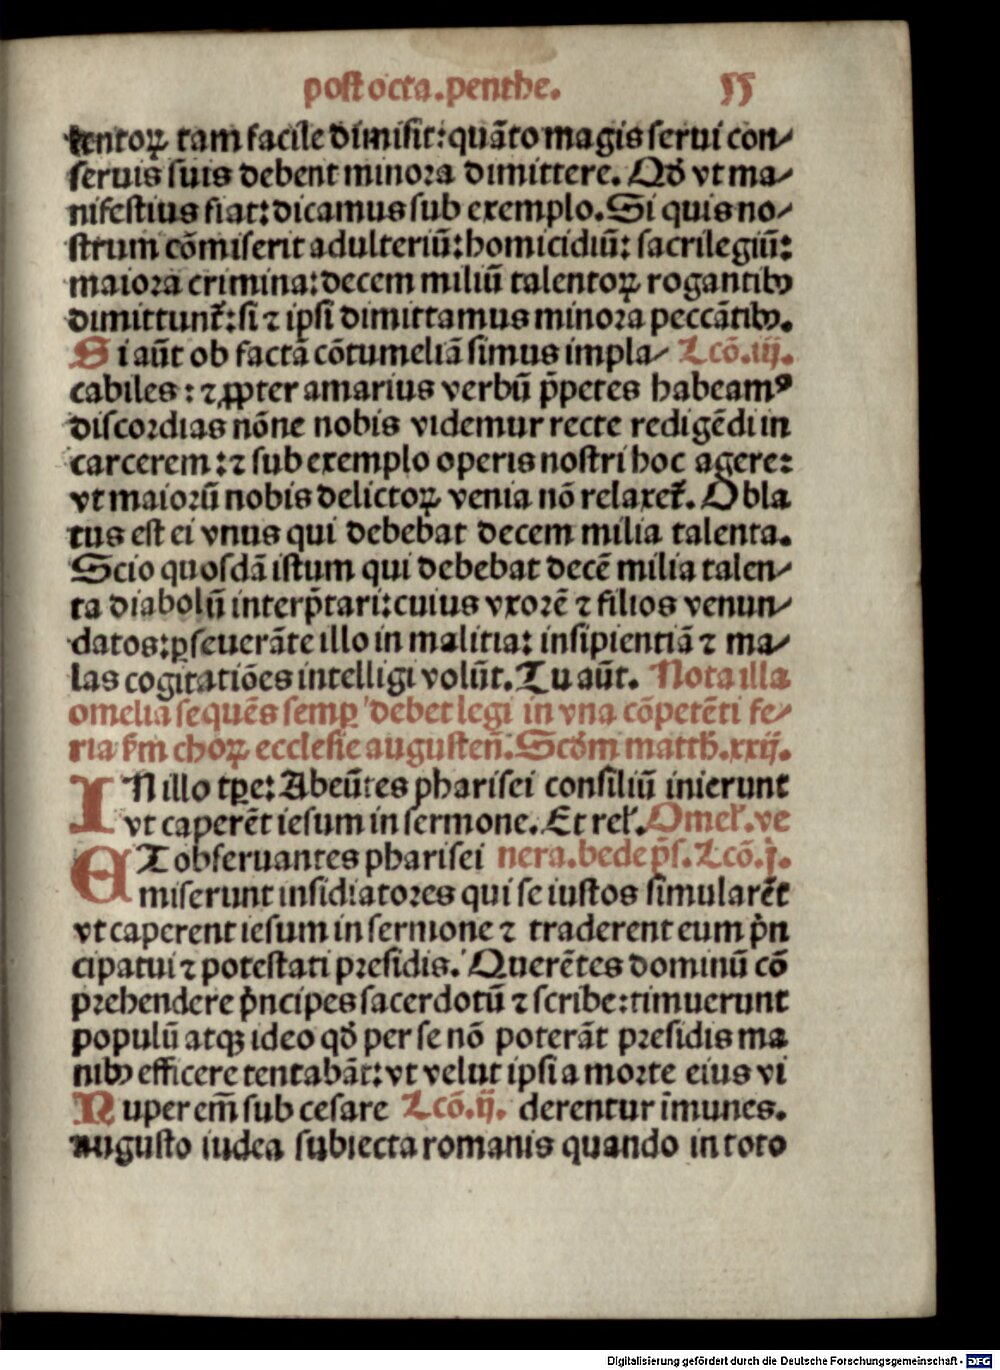 post octa.penthe. 55
tentoꝝ tam facile dimisit:quāto magis serui con⸗
seruis suis debent minora dimittere. Qđ vt ma⸗
nifestius fiat:dicamus sub exemplo. Si quis no⸗
strum cōmiserit adulteriū:homicidiū: sacrilegiū:
maiora crimina:decem miliū talentoꝝ rogantibꝰ
dimittunt̄:si ⁊ ipsi dimittamus minora peccātibꝰ.
Si aūt ob factā cōtumeliā simus impla⸗ Lcō.iij.
cabiles: ⁊ ꝓpter amarius verbū p̄petes habeamꝰ
discordias nōne nobis videmur recte redigēdi in
carcerem:⁊ sub exemplo operis nostri hoc agere:
vt maiorū nobis delictoꝝ venia nō relaxet̄. Obla
tus est ei vnus qui debebat decem milia talenta.
Scio quosdā istum qui debebat decē milia talen⸗
ta diabolū interp̄tari:cuius vxorē ⁊ filios venun⸗
datos:ꝑseuerāte illo in malitia: insipientiā ⁊ ma⸗
las cogitatiōes intelligi volūt. Tu aūt. Nota illa
omelia sequēs semꝑ debet legi in vna cōpetēti fe⸗
ria s̄m choꝝ ecclesie augusteñ. Scđm matth̄.xxij.
IN illo tp̄e: Abeūtes pharisei consiliū inierunt
vt caperēt iesum in sermone. Et rel̄. Omel̄.ve
ET obseruantes pharisei nera.bede p̄s. Lcō.j.
miserunt insidiatores qui se iustos simularēt
vt caperent iesum in sermone ⁊ traderent eum p̄n
cipatui ⁊ potestati presidis. Querētes dominū cō
prehendere p̄ncipes sacerdotū ⁊ scribe:timuerunt
populū atqꝫ ideo qđ per se nō poterāt presidis ma
nibꝰ efficere tentabāt:vt velut ipsi a morte eius vi
Nuper em̄ sub cesare Lcō.ij. derentur īmunes.
augusto iudea subiecta romanis quando in toto
Digitalisierung gefördert durch die Deutsche Forschungsgemeinschaft - DFG